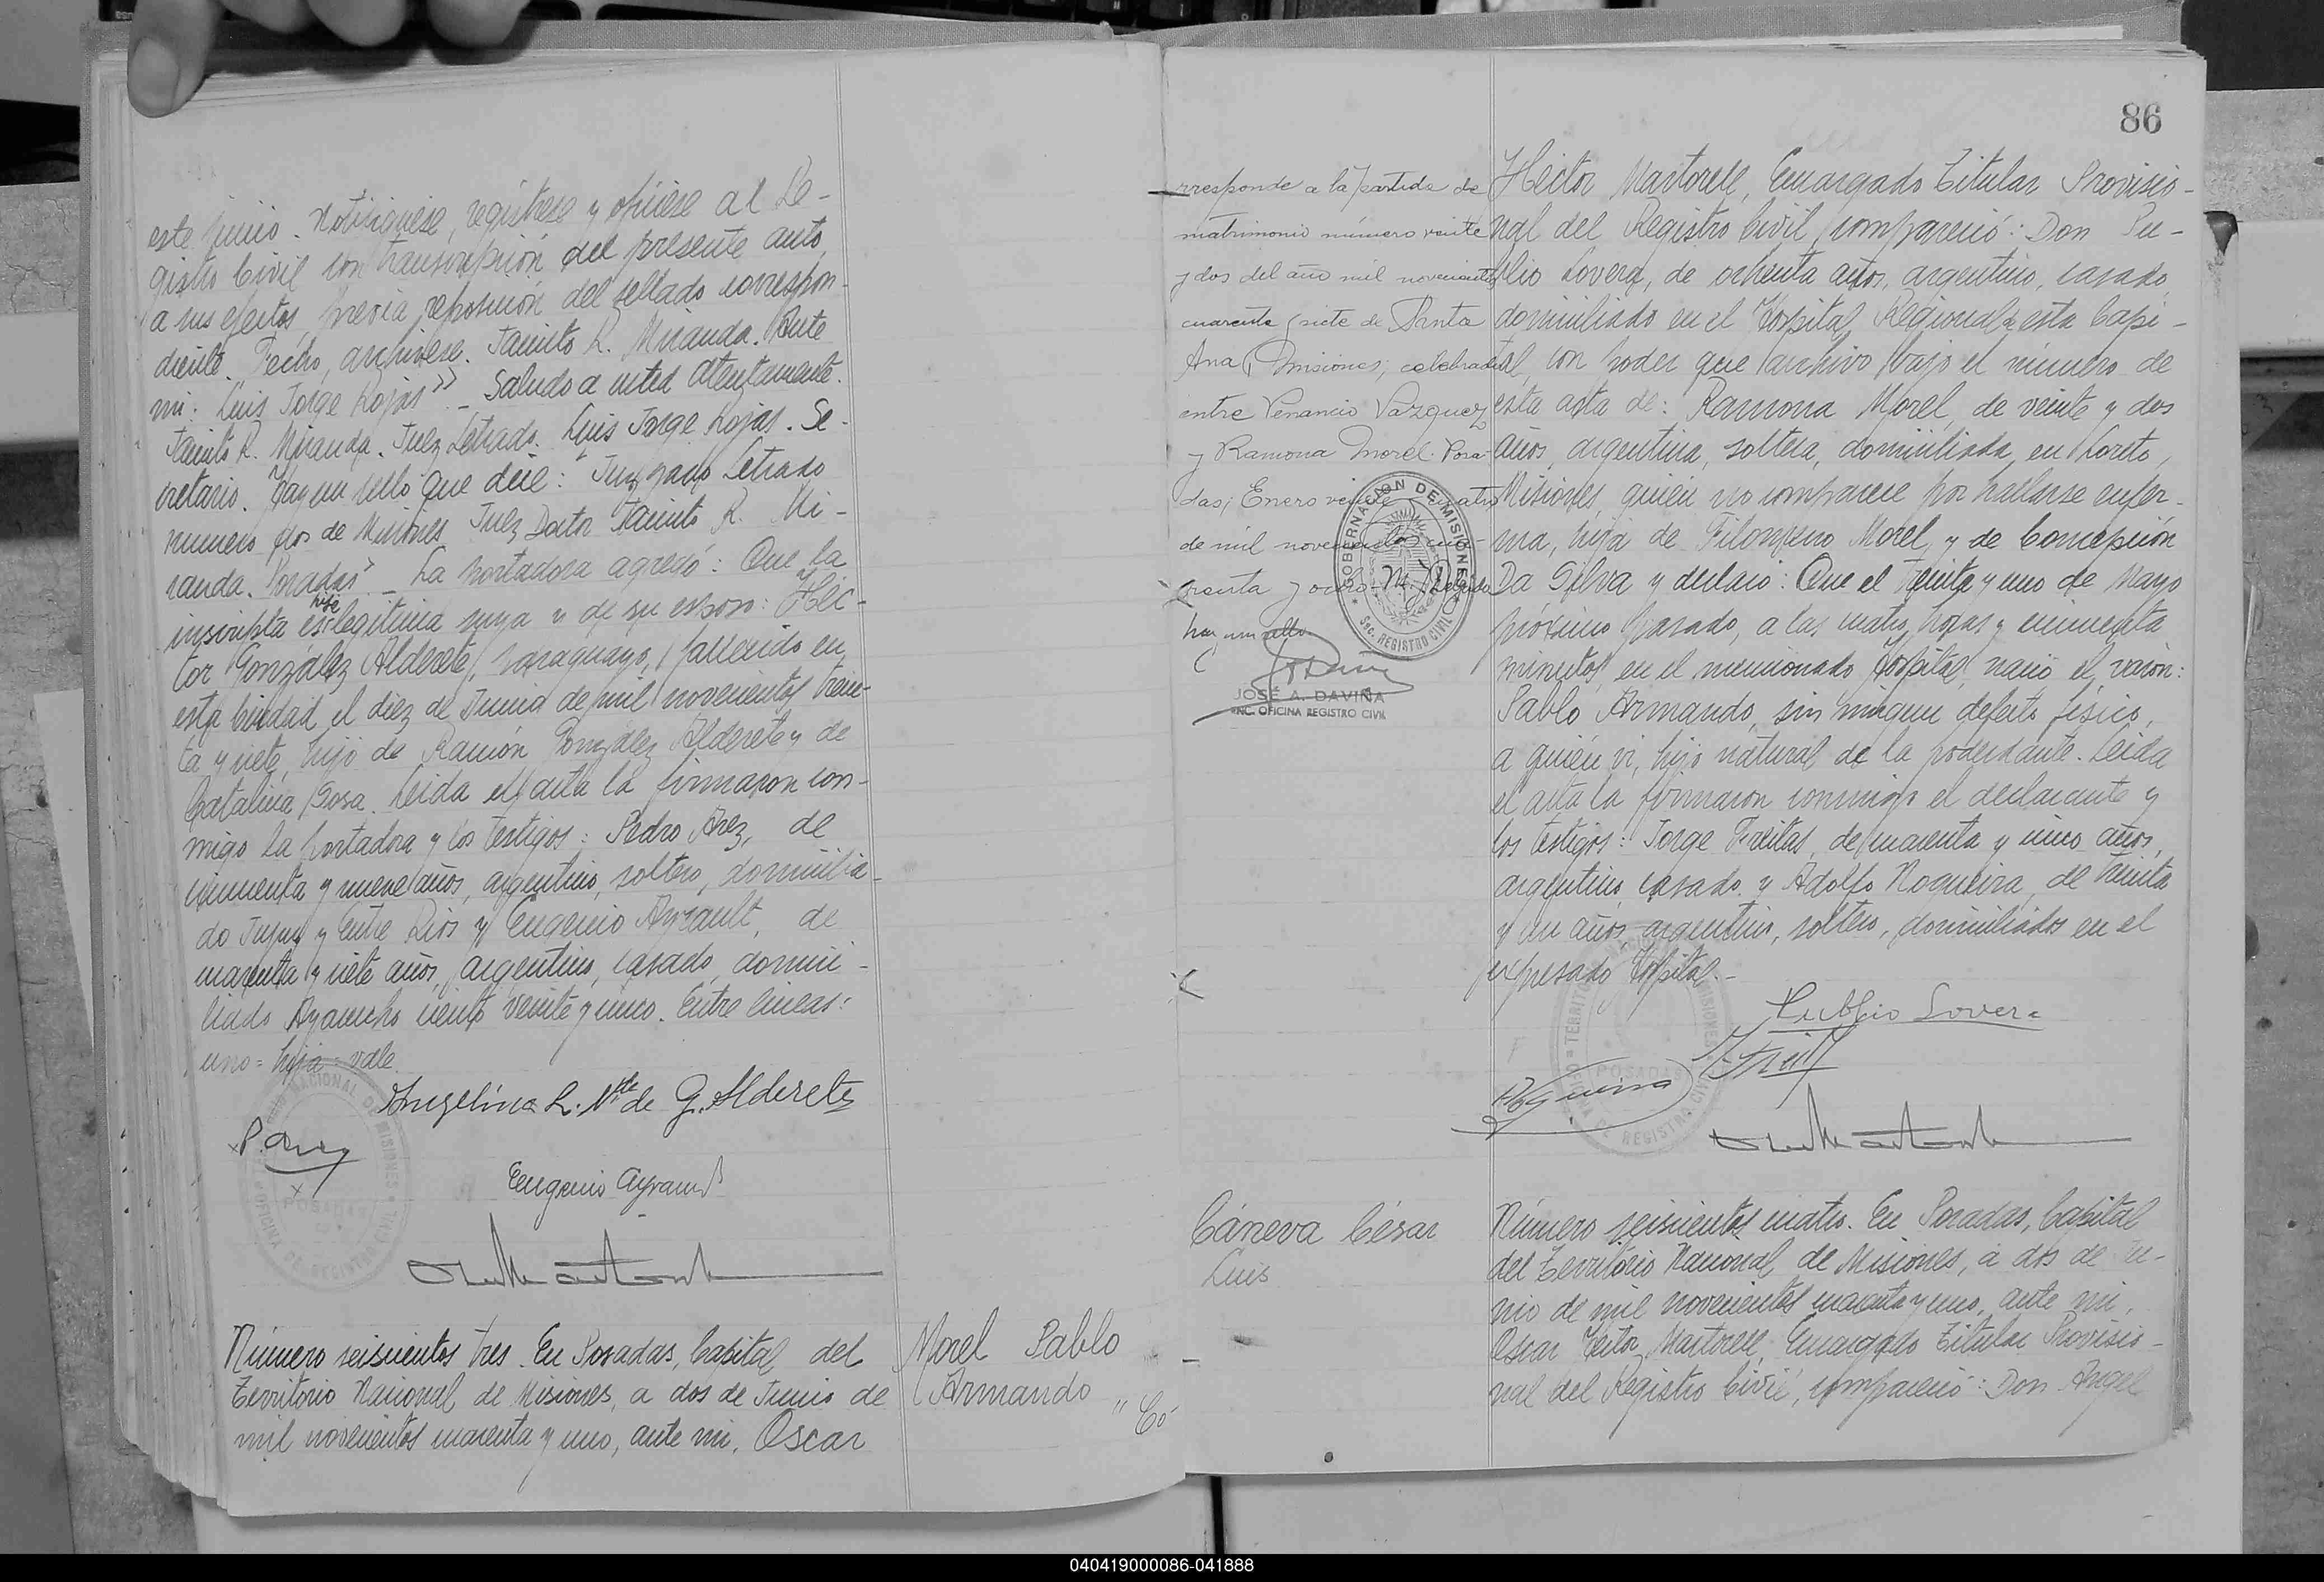 este juicio. Notifíquese, regístrese y ofíciese al Re-
gistro Civil con transcripción del presente auto,
a sus efectos, previa reposición del sellado correspon-
diente. Fecho, archívese. Jacinto R. Miranda. Ante
mi: Luis Jorge Rojas". _ Saludo a usted atentamente.
Jacinto R. Miranda. Juez Letrado. Luis Jorge Rojas. Se-
cretario. Hay un sello que dice: "Juzgado Letrado
número dos de Misiones Juez Doctor Jacinto R. Mi-
randa. Posadas" _ La portadora agregó: Que la
hija
inscripta es legítima suya y de su esposo: Héc-
tor González Alderete, paraguayo, fallecido en
esta Ciudad el diez de Junio de mil novecientos trein-
ta y siete, hijo de Ramón González Alderete y de
Catalina Sosa. Leida el acta la firmaron con-
migo la portadora y los testigos: Pedro Arez, de
cincuenta y nueve años, argentino, soltero, domicilia-
do Jujuy y Entre Rios y Eugenio Ayrault, de
cuarenta y siete años, argentino, casado, domici-
liado Ayacucho ciento veinte y cinco. Entre líneas:
uno = hija = vale.
Angelina L. Vda de G. Alderete
P. Arez
Eugenio Ayrault
NACIONAL DE MISIONES
POSADAS
OFICINA DE REGISTRO CIVIL
Número seiscientos tres. En Posadas, Capital del
Territorio Nacional de Misiones, a dos de Junio de
mil novecientos cuarenta y uno, ante mi, Oscar
Morel Pablo
Armando
" Co-
86
rresponde a la partida de
matrimonio número veinte
y dos del año mil novecientos
cuarenta y siete de Santa
Ana, Misiones; celebrado
entre Venancio Vazquez
y Ramona Morel. Posa-
das, Enero veinte y cuatro
de mil novecientos cua-
renta y ocho.
hay un sello
GOBERNACION DE MISIONES
SEC. REGISTRO CIVIL
JOSÉ A. DAVIÑA
ENC. OFICINA REGISTRO CIVIL
Héctor Martorell, Encargado Titular Provisio-
nal del Registro Civil, compareció: Don Pu-
blio Lovera, de ochenta años, argentino, casado,
domiciliado en el Hospital Regional de esta Capi-
tal, con poder que archivo bajo el número de
esta acta de: Ramona Morel, de veinte y dos
años, argentina, soltera, domiciliada en Loreto,
Misiones, quién no comparece por hallarse enfer-
ma, hija de Filomeno Morel y de Concepción
Da Silva y declaró: Que el treinta y uno de Mayo
próximo pasado, a las cuatro horas y cincuenta
minutos, en el mencionado Hospital, nació el varón:
Pablo Armando, sin ningun defecto físico,
a quién vi, hijo natural de la poderdante. Leida
el acta la firmaron conmigo el declarante y
los testigos: Jorge Freitas, de cuarenta y cinco años,
argentino, casado y Adolfo Nogueira, de treinta
y un años, argentino, soltero, domiciliados en el
expresado Hospital._
Publio Lovera
POSADAS
Cáneva César
Luis
Número seiscientos cuatro. En Posadas, Capital
del Territorio Nacional de Misiones, a dos de Ju-
nio de mil novecientos cuarenta y uno, ante mi,
Oscar Héctor Martorell, Encargado Titular Provisio-
nal del Registro Civil, compareció: Don Angel
040419000086-041888